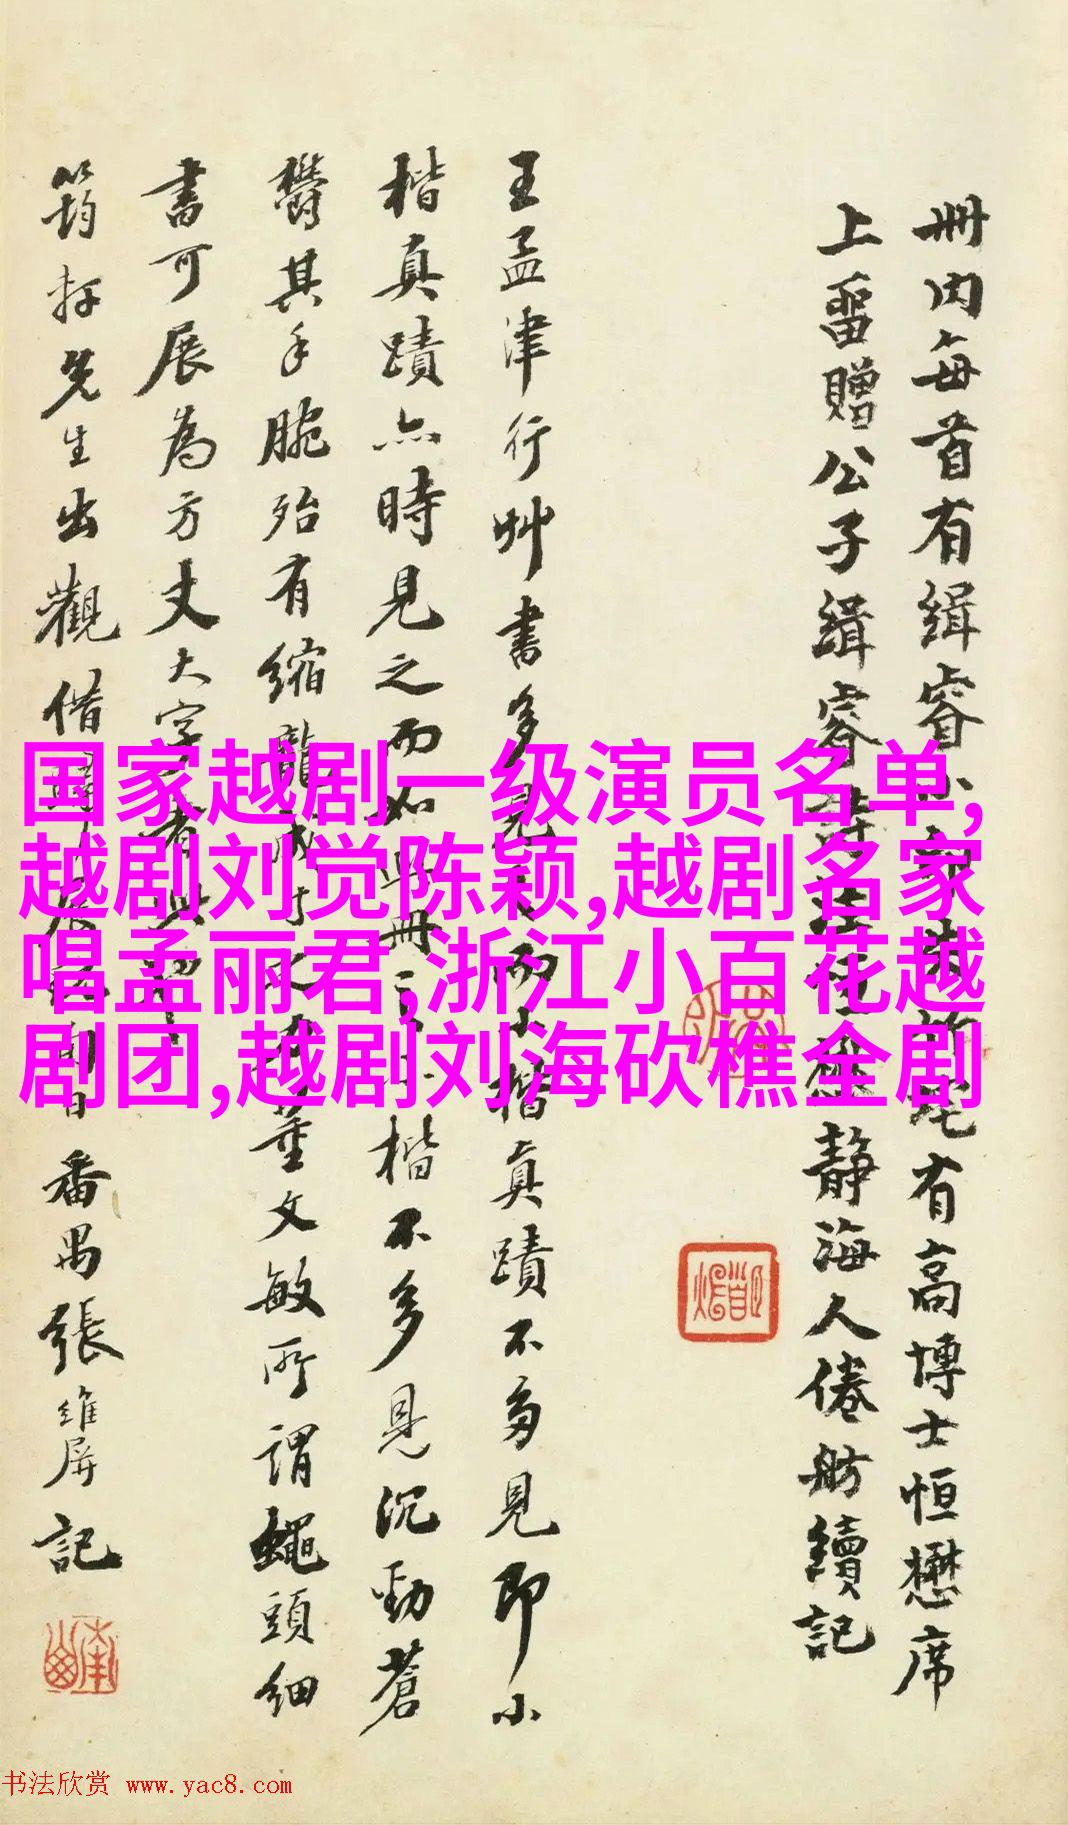 冊内每首有緝睿小
有高博士恒懋席
上留贈公子緝睿詩
靜海人倦舫續記
王孟津行艸書多見
楷真蹟不多見即小
楷真蹟亦時見之而如
冊
楷不多見沉勁蒼
鬱其手腕殆有縮
董文敏所謂蠅頭細
書可展為方丈大字者
筠
先生出觀借
番禺張維屏記
国家越剧一级演员名单,
越剧刘觉陈颖,越剧名家
唱孟丽君,浙江小百花越
剧团,越剧刘海砍樵全剧
书法欣赏 www.yac8.com